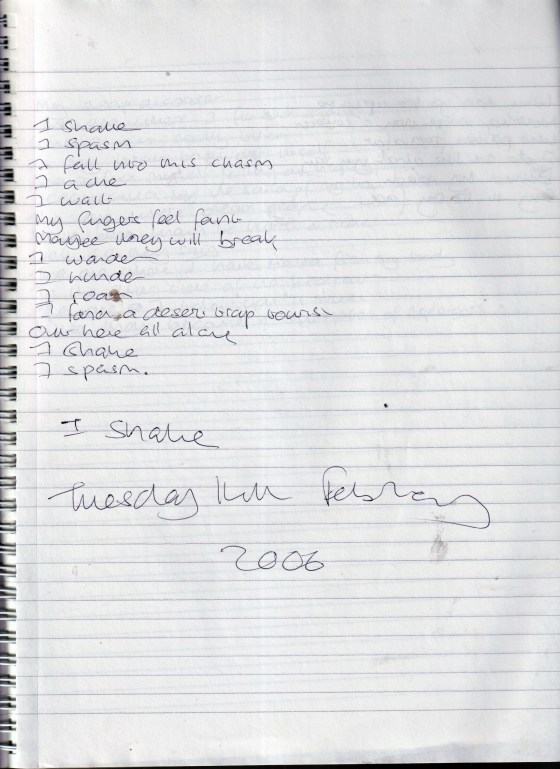 I shake
I spasm
I fall into this chasm
I ache
I wait
My fingers feel faint
Maybee they will break
I wander
I
I roam
I a desert trap
Out here all alone
I shake
I spasm.
I shake
Tuesday February
2006